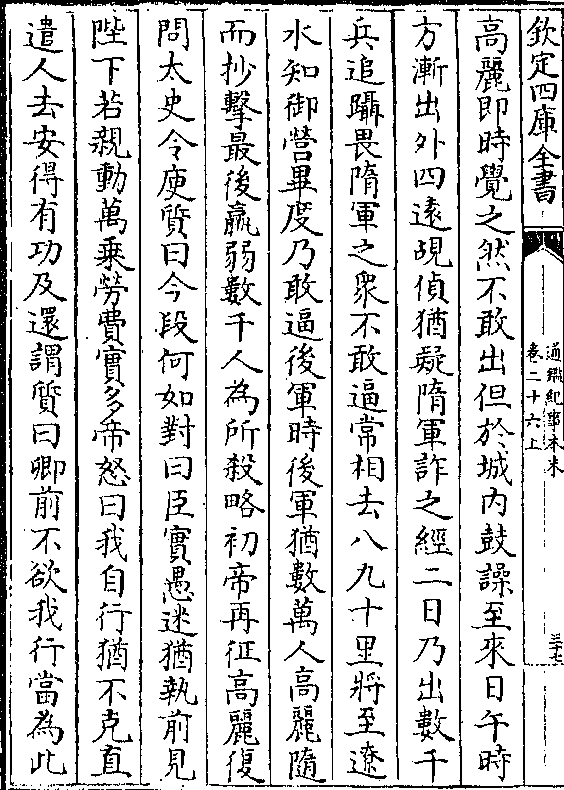 欽定四庫全書
通鑑紀事本末
卷二十六上
三十七
高麗即時覺之然不敢出但於城内鼓譟至來日午時
方漸出外四遠覘偵猶疑隋軍詐之經二日乃出數千
兵追躡畏隋軍之衆不敢逼常相去八九十里將至遼
水知御營畢度乃敢逼後軍時後軍猶數萬人高麗隨
而抄擊最後羸弱數千人為所殺略初帝再征高麗復
問太史令庾質曰今段何如對曰臣實愚迷猶執前見
陛下若親動萬乗勞費實多帝怒曰我自行猶不克直
遣人去安得有功及還謂質曰卿前不欲我行當為此